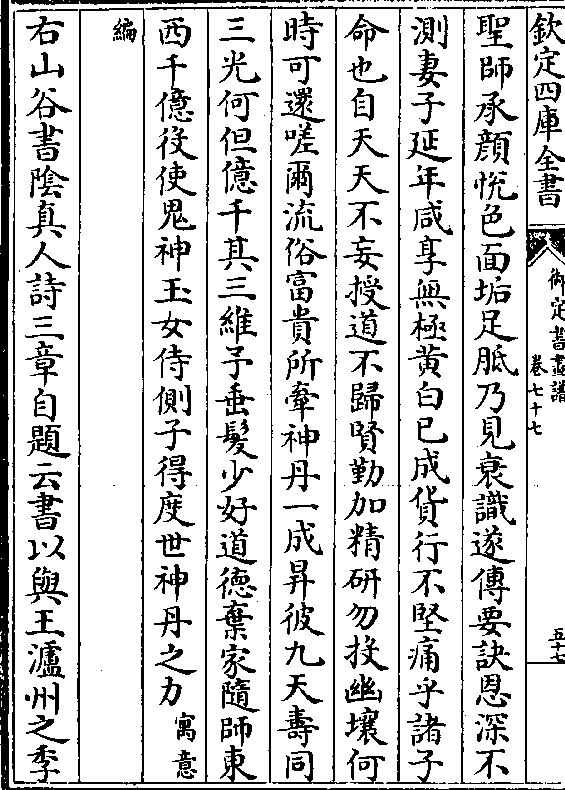 欽定四庫全書
御定書畫譜
卷七十七
五十七
聖師承顔悅色面垢足胝乃見衰識遂傳要訣恩深不
測妻子延年咸享無極黄白已成貨行不堅痛乎諸子
命也自天天不妄授道不歸賢勤加精研勿投幽壤何
時可還嗟爾流俗富貴所牽神丹一成昇彼九天壽同
三光何但億千其三維子垂髮少好道德棄家隨師東
西千億役使鬼神玉女侍側子得度世神丹之力寓意
編
右山谷書陰真人詩三章自題云書以與王瀘州之季